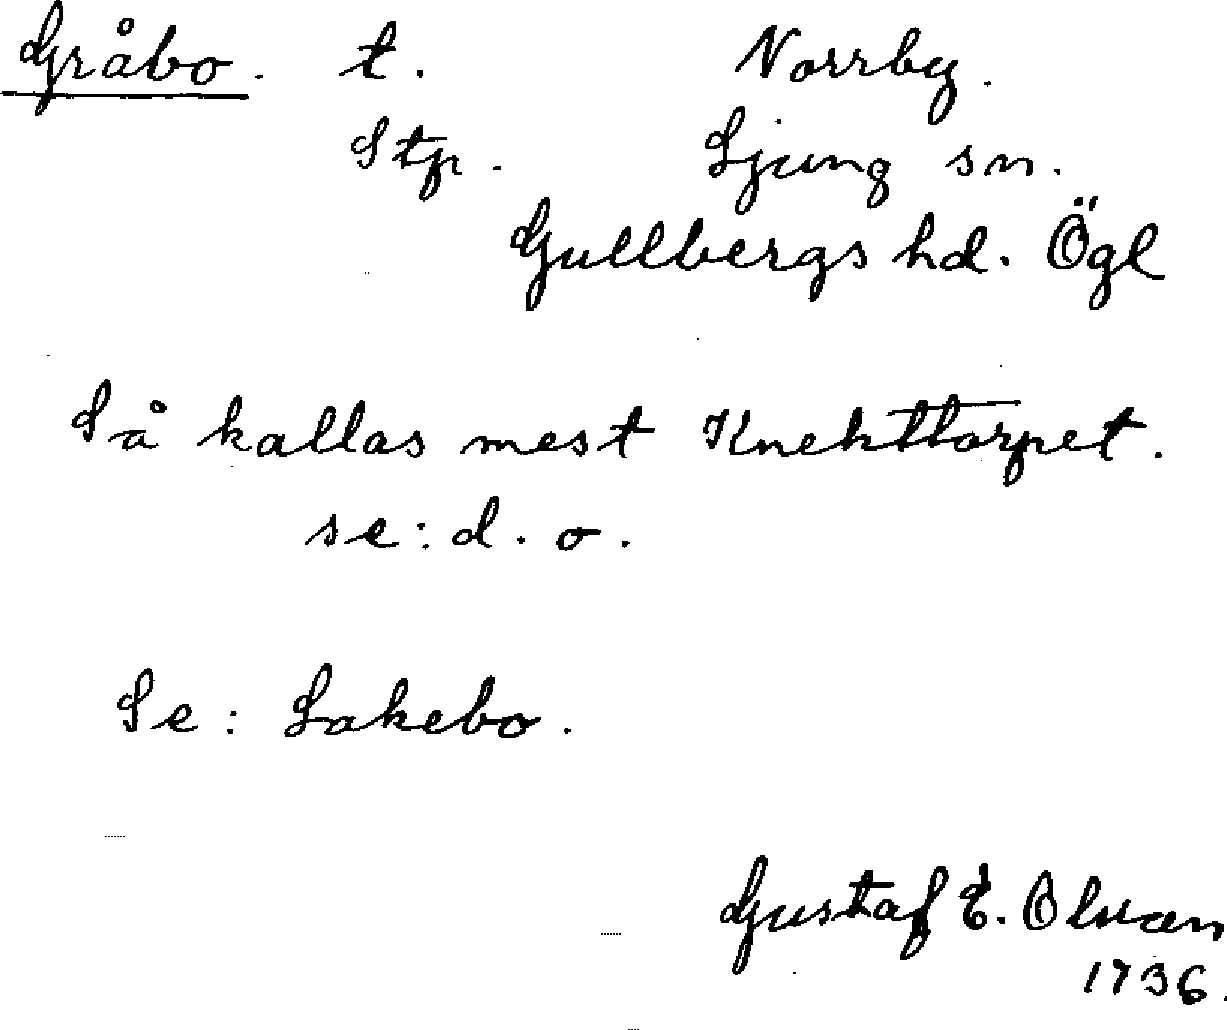 Gråbo. t. Norrby.
Stp. Ljung sn.
Gullbergs hd. Ögl
Så kallas mest Knekttorpet.
se: d. o.
Se: Lakebo.
Gustaf E.
1936.